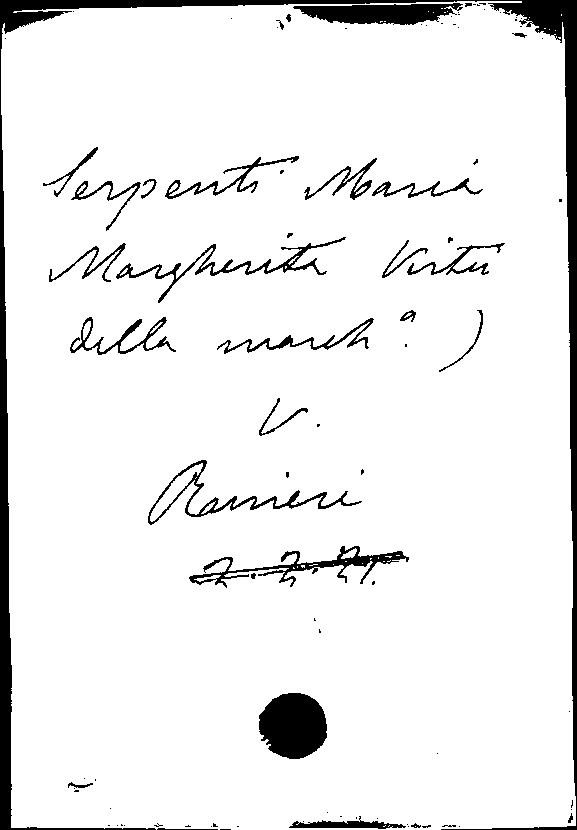 Serpenti Maria
Margherita Virtù
della march.ª )
V.
Ranieri